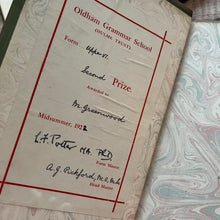 Oldham Grammar School
(HULME TRUST)
Form Upper VI.
Second Prize.
Awarded to
M. Greenwood
Midsummer, 1922
L. F. Potter M.A. Ph.D.
Form Master
A. G. Pickford, M.A.
Head Master